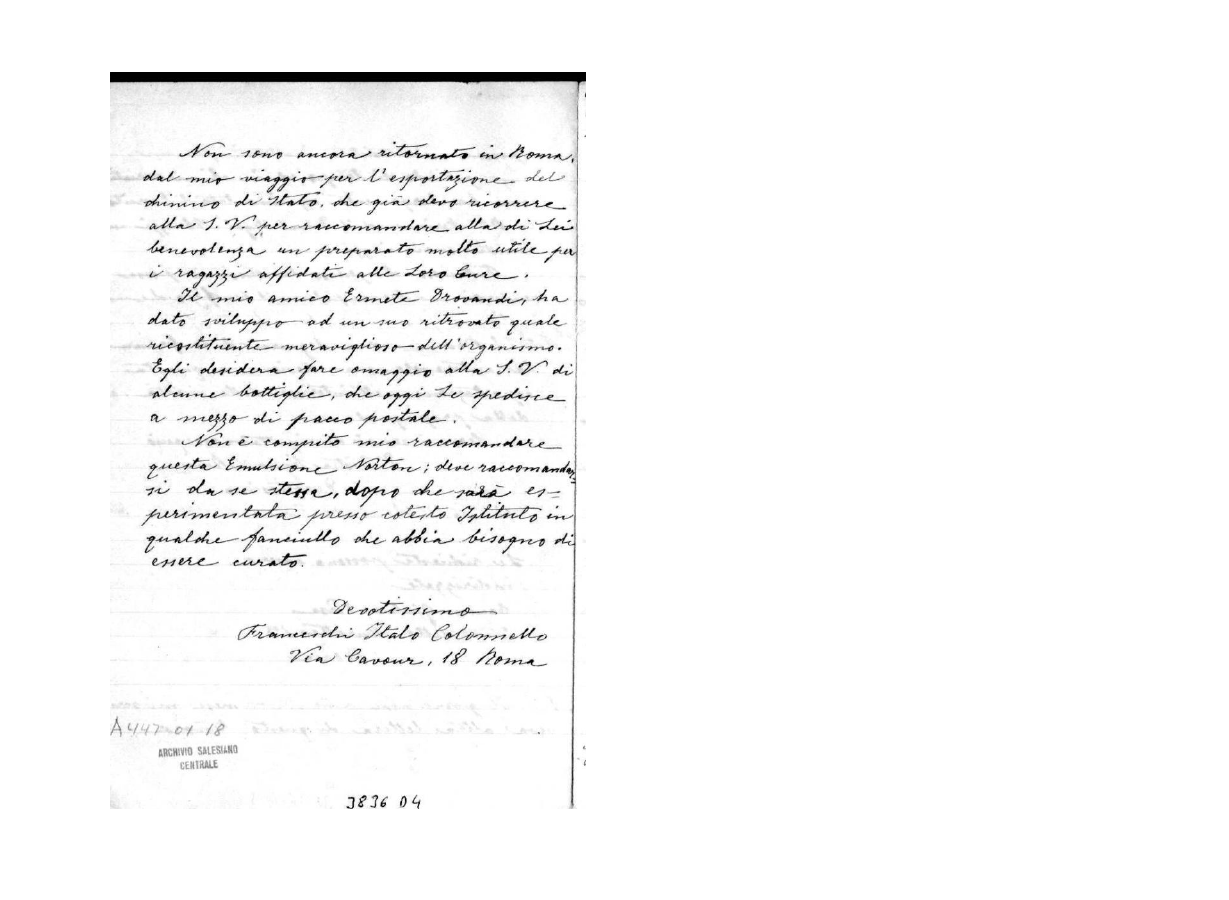 Non sono ancora ritornato in Roma,
dal mio viaggio per l'esportazione del
chinino di Stato, che già devo ricorrere
alla S. V. per raccomandare alla di Lei
benevolenza un preparato molto utile per
i ragazzi affidati alle Loro Cure.
Il mio amico Ermete Drovandi, ha
dato sviluppo ad un suo ritrovato quale
ricostituente meraviglioso dell'organismo.
Egli desidera fare omaggio alla S. V. di
alcune bottiglie, che oggi Le spedisce
a mezzo di pacco postale.
Non è compito mio raccomandare
questa Emulsione Norton; deve raccomandar=
si da se stessa, dopo che sarà es=
perimentata presso cotesto Istituto in
qualche fanciullo che abbia bisogno di
essere curato.
Devotissimo
Franceschi Italo Colonnello
Via Cavour, 18 Roma
A447 01 18
ARCHIVIO SALESIANO
CENTRALE
3836 D4